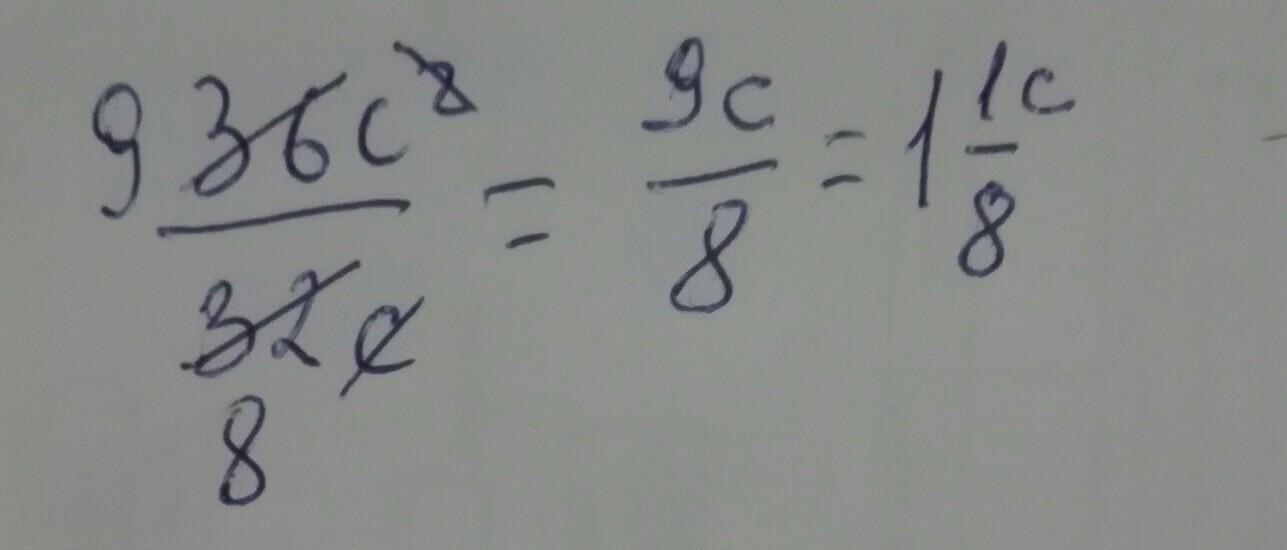 9 36c² / 32c 8 = 9c/8 = 1 1c/8